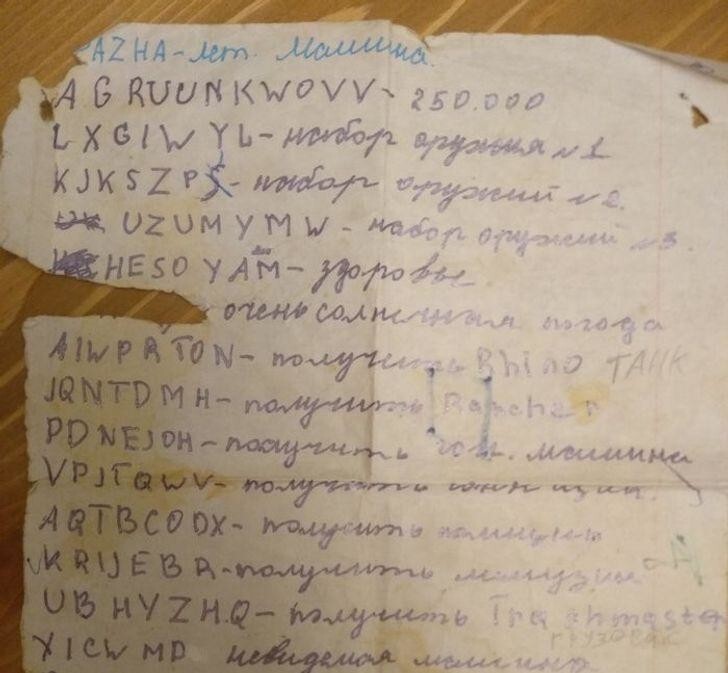 AZHA - лет. Машина.
AGRUUNKWOVV - 250.000
LXGIWYL - набор оружия №1
KJKSZPJ - набор оружий №2.
UZUMYMW - набор оружий №3.
HESOYAM - здоровье
очень солнечная погода
AIWPRTON - получить Rhino ТАНК
JQNTDMH - получить Rancher
PDNEJOH - получить гон. машина
VPJTQWV - получить гон
AQTBCODX - получить
KRIJEBR - получить
UBHYZHQ - получить Trashmaster
грузовик
XICWMD невидемая машина